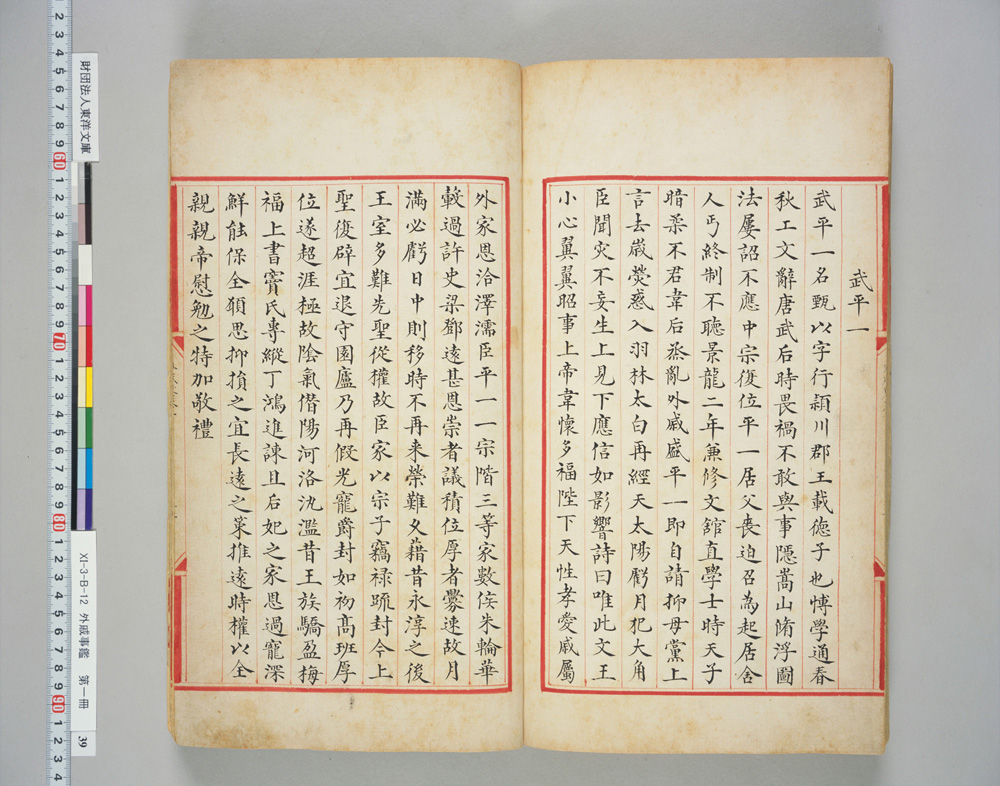 武平一
武平一名甄以字行潁川郡王載德子也博學通春
秋工文辭唐武后時畏禍不敢與事隱嵩山脩浮圖
法屢詔不應中宗復位平一居父喪迫召為起居舍
人丐終制不聽景龍二年兼修文舘直學士時天子
暗柔不君韋后烝亂外戚盛平一即自請抑母黨上
言去歲熒惑入羽林太白再經天太陽虧月犯大角
臣聞災不妄生上見下應信如影響詩曰唯此文王
小心翼翼昭事上帝聿懷多福陛下天性孝愛戚屬
外家恩洽澤濡臣平一一宗階三等家數侯朱輪華
轂過許史梁鄧遠甚恩崇者議積位厚者釁速故月
滿必虧日中則移時不再来榮難久藉昔永淳之後
王室多難先聖從權故臣家以宗子竊禄疏封今上
聖復辟宜退守園廬乃再假光寵爵封如初高班厚
位遂超涯極故陰氣僭陽河洛氿濫昔王族驕盈梅
福上書竇氏專縱丁鴻進諫且后妃之家恩過寵深
鮮能保全願思抑損之宜長遠之策推遠時權以全
親親帝慰勉之特加敬禮
財団法人東洋文庫
XI-3-B-12 外戚事鑑 第一冊 39